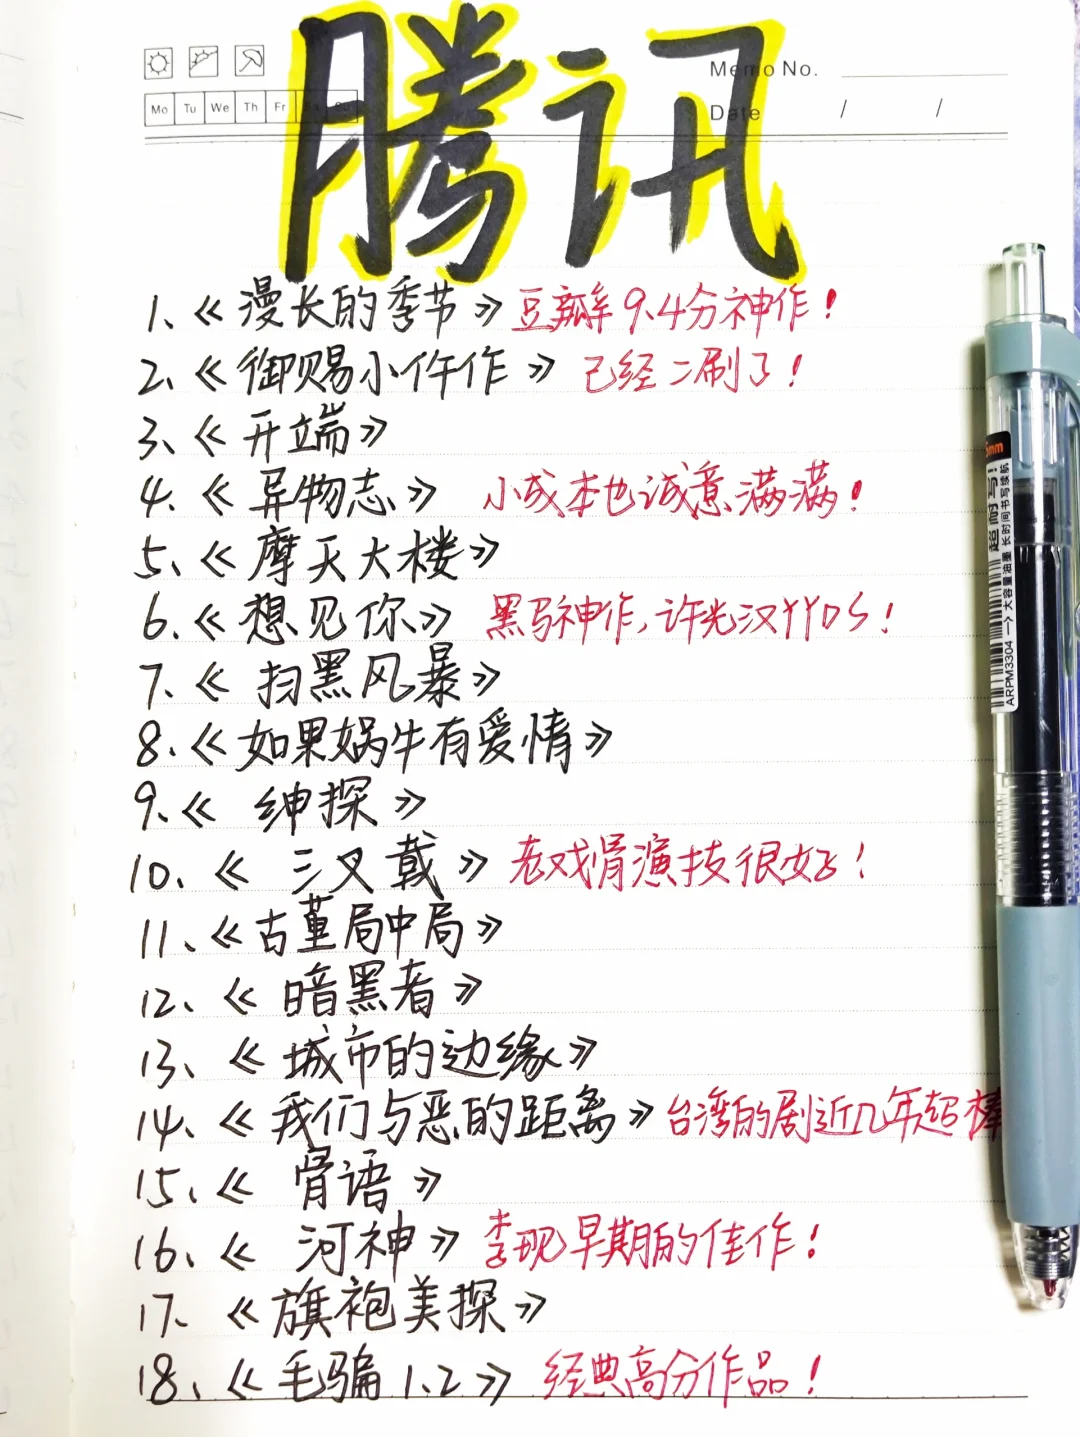 腾讯
Memo No.
Mo Tu We Th Fr Sa Su
Date / /
1、《漫长的季节》豆瓣9.4分神作！
2、《御赐小仵作》已经二刷了！
3、《开端》
4、《异物志》小成本也诚意满满！
5、《摩天大楼》
6、《想见你》黑马神作，许光汉YYDS！
7、《扫黑风暴》
8、《如果蜗牛有爱情》
9、《绅探》
10、《三叉戟》老戏骨演技很好！
11、《古董局中局》
12、《暗黑者》
13、《城市的边缘》
14、《我们与恶的距离》台湾的剧近几年超棒
15、《骨语》
16、《河神》李现早期的佳作！
17、《旗袍美探》
18、《毛骗1.2》经典高分作品！
5mm
超耐写！
大容量油墨 长时间书写顺畅
ARPM3304